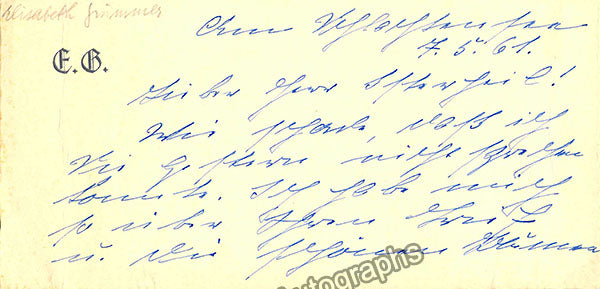 Elisabeth Grümmer
Am Schlachtensee
7. 5. 61.
E. G.
Lieber Herr
Wie schade, daß ich
Sie gestern nicht sprechen
konnte. Ich habe mich
so über Ihren Brief
u. die schönen Blumen
Autographs